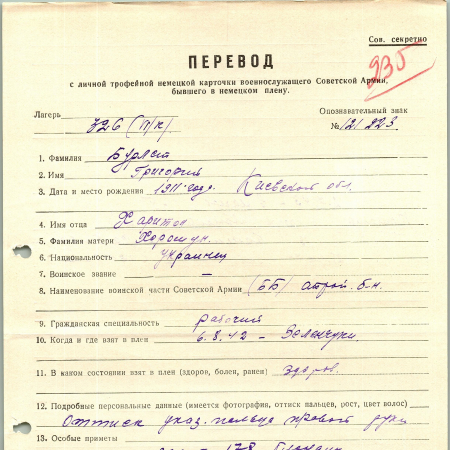 Сов. секретно
235
ПЕРЕВОД
с личной трофейной немецкой карточки военнослужащего Советской Армии,
бывшего в немецком плену.
Лагерь 326 (П/К).
Опознавательный знак
№ 121223
1. Фамилия Бурлет
2. Имя Григорий
3. Дата и место рождения 1911 года. Киевской обл.
4. Имя отца Харитон
5. Фамилия матери Хорошун.
6. Национальность украинец
7. Воинское звание —
8. Наименование воинской части Советской Армии (ББ) строй. б-н.
9. Гражданская специальность рабочий
10. Когда и где взят в плен 6.8.42 – Зеленчуки.
11. В каком состоянии взят в плен (здоров, болен, ранен) здоров.
12. Подробные персональные данные (имеется фотография, оттиск пальцев, рост, цвет волос)
Оттиск указ. пальца правой руки
13. Особые приметы
178